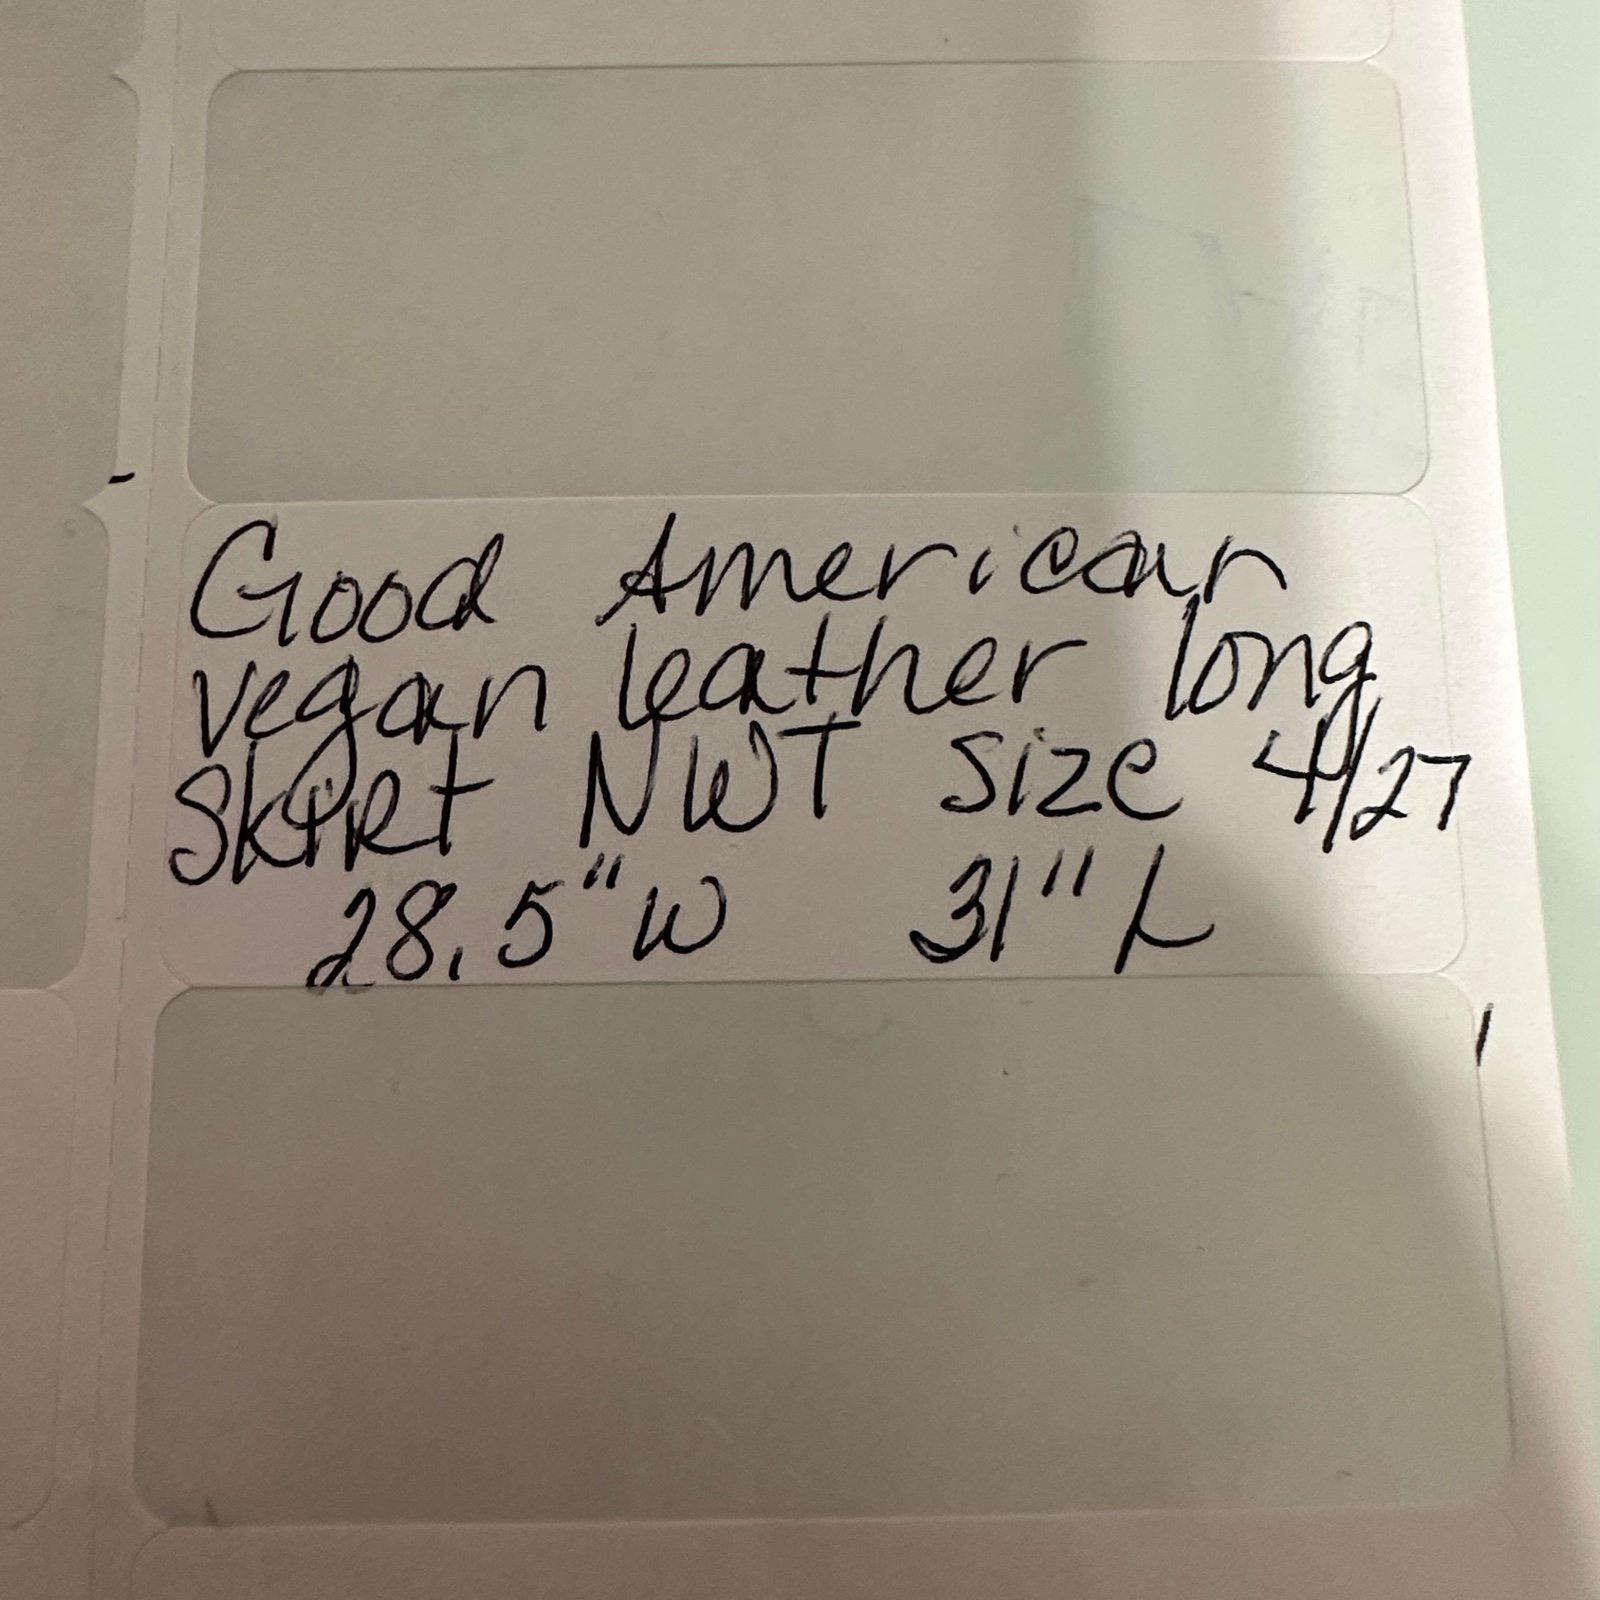 Good American
vegan leather long
SKIRT NWT size 4/27
28.5" W 31" L